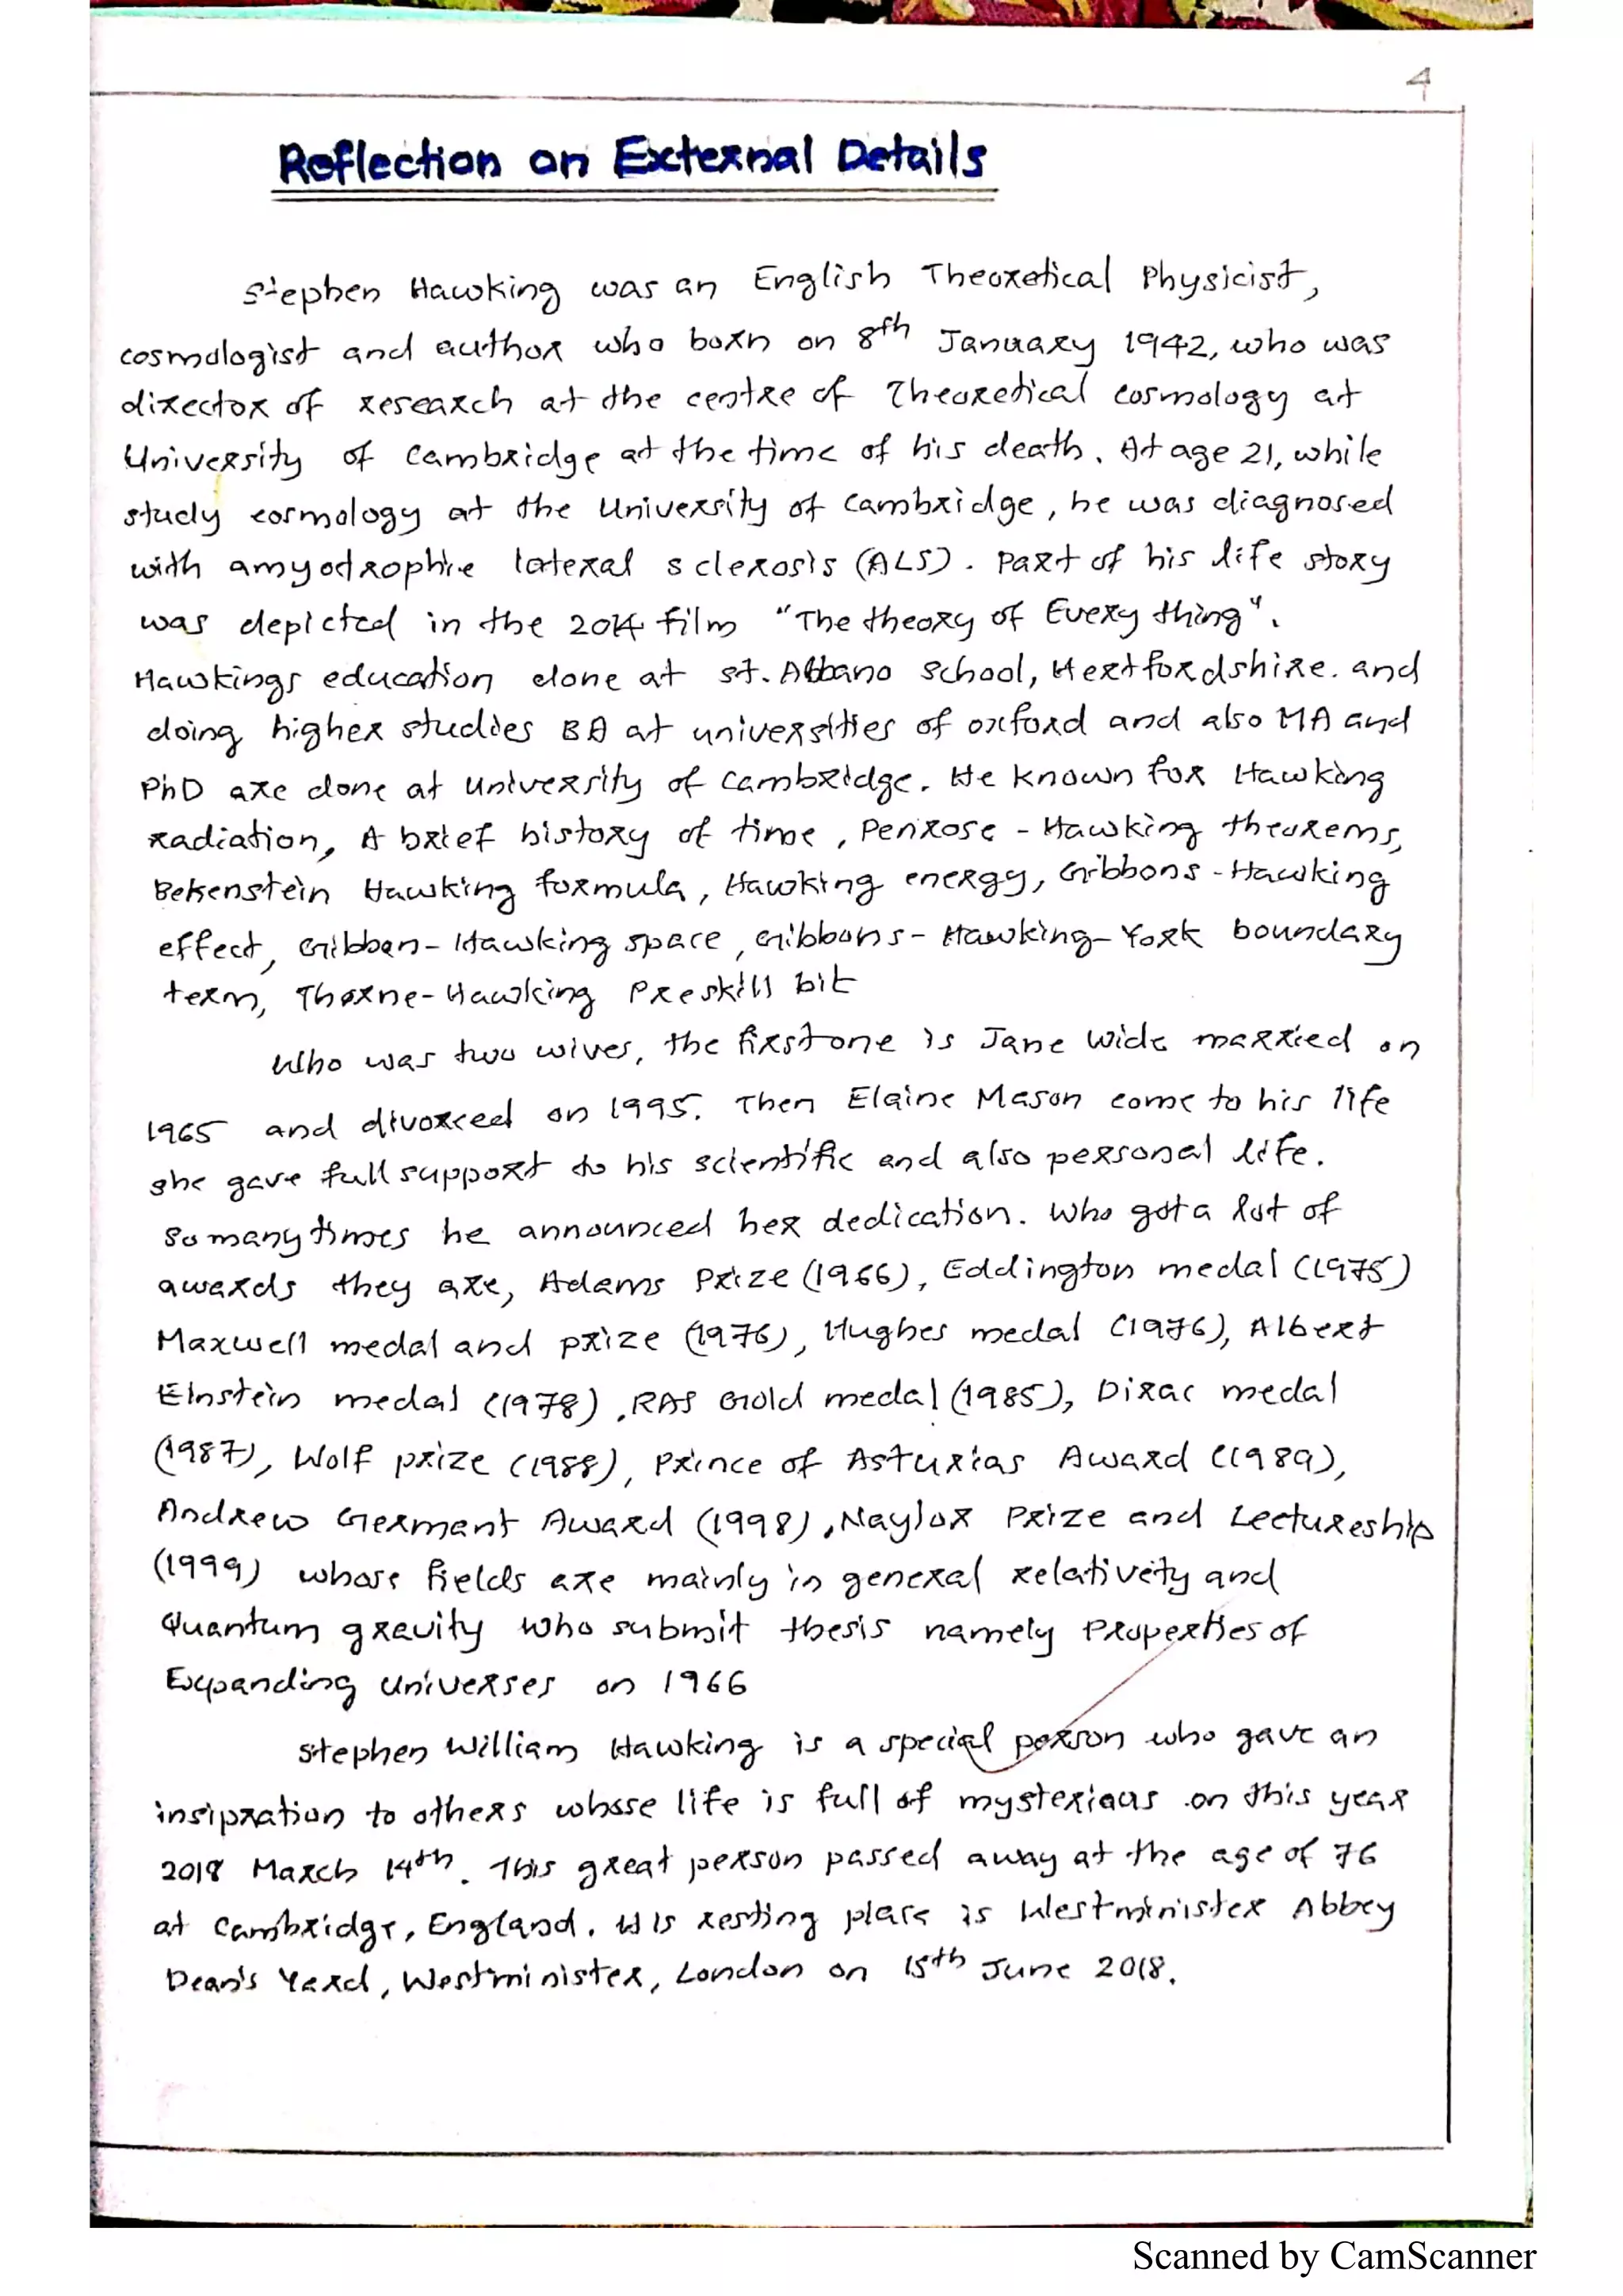 4
Reflection on External Details
Stephen Hawking was an English Theoretical Physicist,
cosmologist and author who born on 8th January 1942, who was
director of research at the centre of Theoretical cosmology at
University of Cambridge at the time of his death. At age 21, while
study cosmology at the University of Cambridge, he was diagnosed
with amyotrophic lateral sclerosis (ALS). Part of his life story
was depicted in the 2014 film "The theory of Every thing".
Hawkings education done at st. Albano School, Hertfordshire. and
doing higher studies BA at universities of oxford and also MA and
PhD are done at University of Cambridge. He known for Hawking
radiation, A brief history of time, Penrose - Hawking theorems,
Bekenstein Hawking formula, Hawking energy, Gibbons - Hawking
effect, Gibbon - Hawking space, Gibbons - Hawking - York boundary
term, Thorne - Hawking Preskill bit
Who was two wives, the first one is Jane Wide married on
1965 and divorced on 1995. Then Elaine Mason come to his life
she gave full support to his scientific and also personal life.
So many times he announced her dedication. Who got a lot of
awards they are, Adams Prize (1966), Eddington medal (1975)
Maxwell medal and prize (1976), Hughes medal (1976), Albert
Einstein medal (1978), RAS Gold medal (1985), Dirac medal
(1987), Wolf prize (1988), Prince of Asturias Award (1989),
Andrew Germant Award (1998), Naylor Prize and Lectureship
(1999) whose fields are mainly in general relativity and
Quantum gravity who submit thesis namely Properties of
Expanding Universes on 1966
Stephen William Hawking is a special person who gave an
insipration to others whose life is full of mysterious on this year
2018 March 14th. This great person passed away at the age of 76
at Cambridge, England. His resting place is Westminister Abbey
Dean's Yard, Westminister, London on 15th June 2018.
Scanned by CamScanner